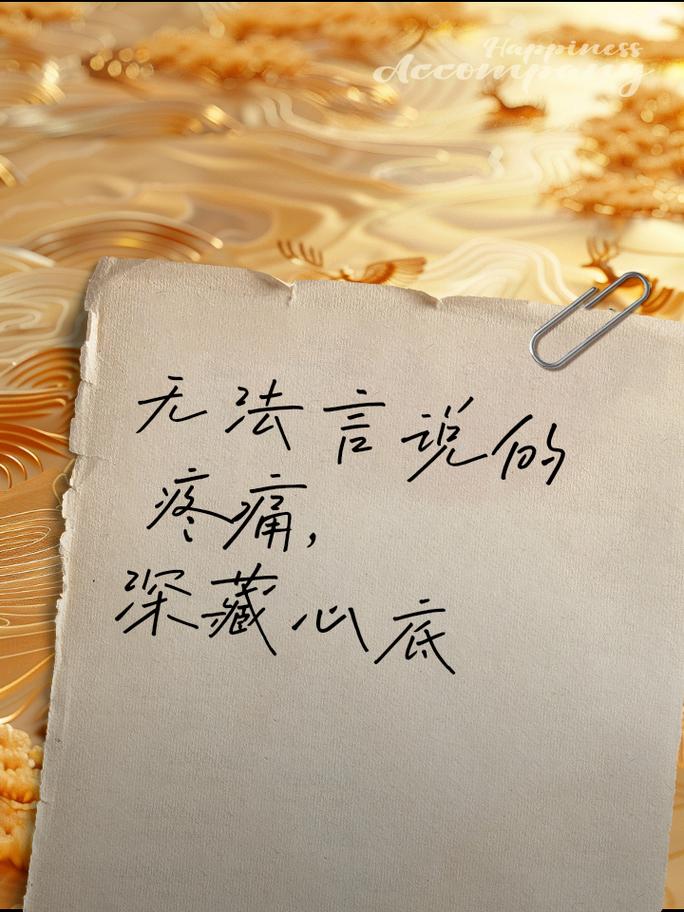 Happiness
Accompany
无法言说的
疼痛,
深藏心底